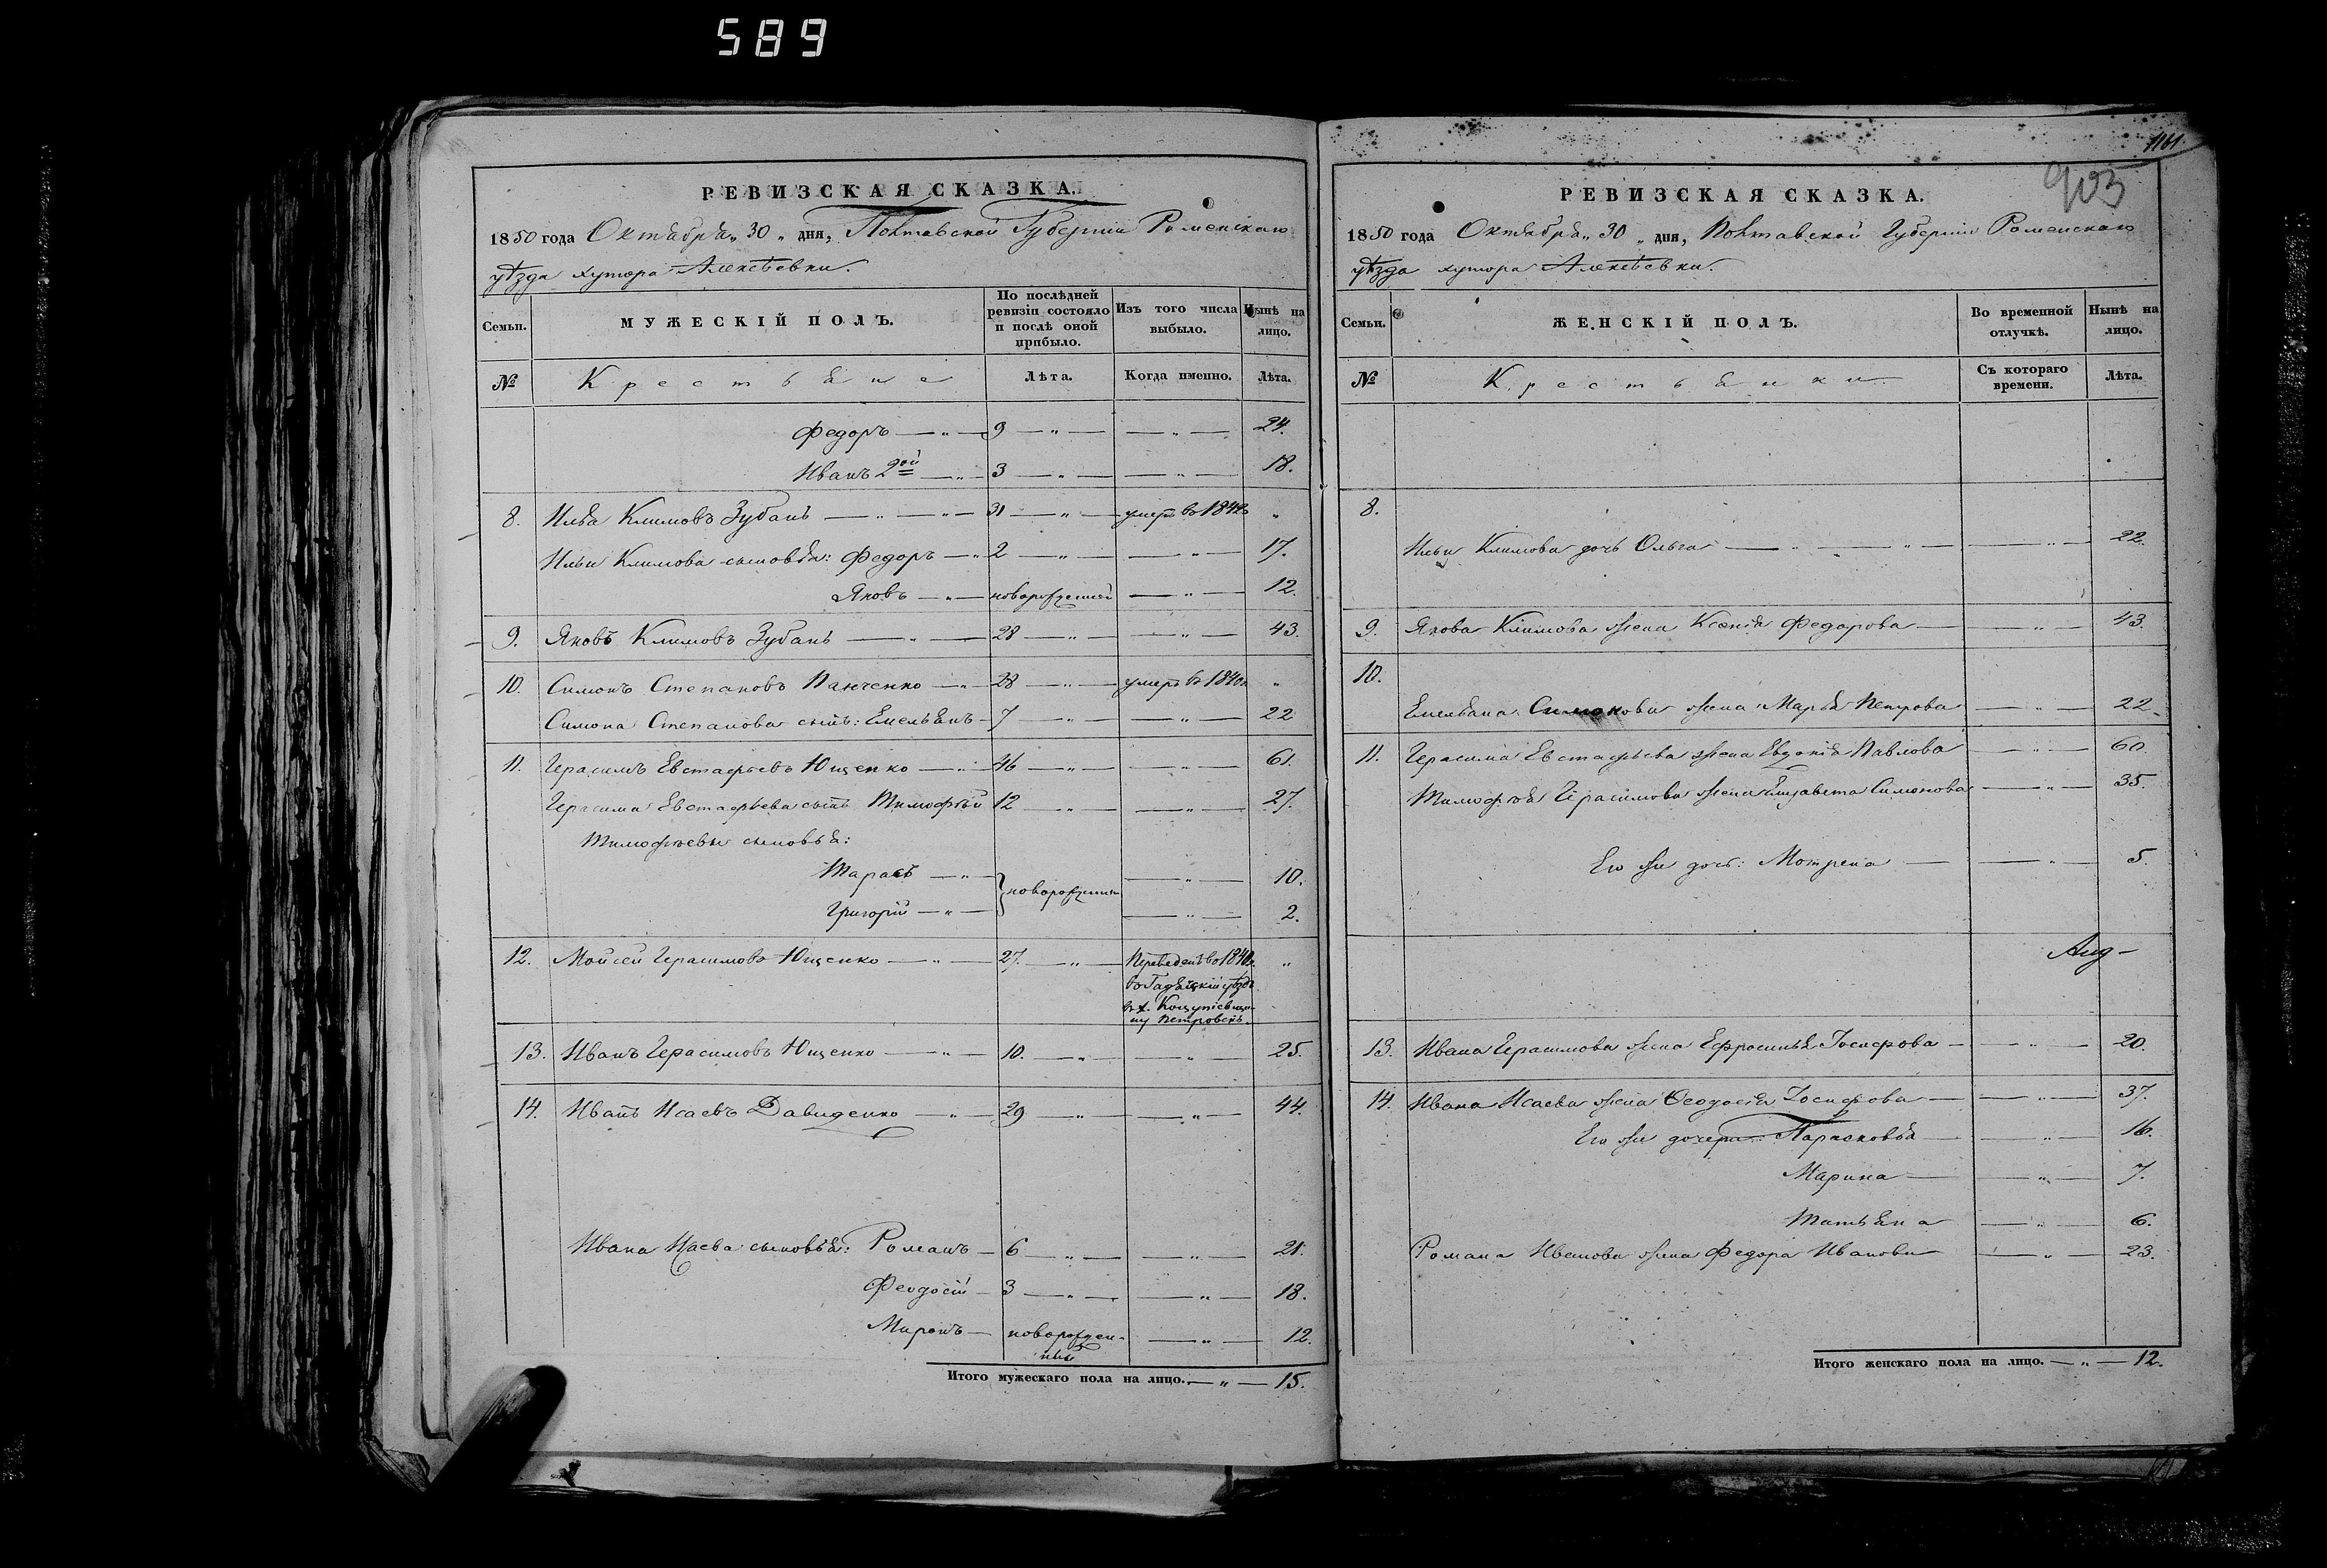 589
РЕВИЗСКАЯ СКАЗКА.
1850 года Октября „ 30 „ дня, Полтавской Губерніи Роменскаго
уѣзда хутора Алексѣевки.
Семьи. МУЖЕСКІЙ ПОЛЪ. По послѣдней ревизіи состояло и послѣ оной прибыло. Изъ того числа выбыло. Нынѣ на лицо.
№ Крестьяне Лѣта. Когда именно. Лѣта.
Федоръ — „ — 9 — „ — — „ — 24.
Иванъ 2ой — „ — 3 — „ — — „ — 18.
8. Илья Климовъ Зубань — „ — „ — 31 — „ — умеръ въ 1842 „
Ильи Климова сыновья: Федоръ — „ 2 — „ — — „ — 17.
Яковъ — „ — новорожденный — „ — 12.
9. Яковъ Климовъ Зубань — „ — 28 — „ — — „ — 43.
10. Симонъ Степановъ Панченко — „ — 28 — „ — умеръ въ 1840 „
Симона Степанова сынъ: Емельянъ — 7 — „ — — „ — 22
11. Герасимъ Евстафьевъ Ющенко — „ — 46 — „ — — „ — 61.
Герасима Евстафьева сынъ Тимофѣй 12 — „ — — „ — 27.
Тимофѣевы сыновья:
Тарасъ — „ — новорожденные — „ — 10.
Григорій — „ — — „ — 2.
12. Мойсей Герасимовъ Ющенко — „ — 27. — „ — Переведенъ въ 1840г. „
въ Гадяцкій уѣздъ
13. Иванъ Герасимовъ Ющенко — „ — 10. — „ — — „ — 25.
14. Иванъ Исаевъ Давиденко — „ — 29 — „ — — „ — 44.
Ивана Исаева сыновья: Романъ — 6 — „ — — „ — 21.
Феодосій — 3 — „ — — „ — 18.
Миронъ — новорожден- — „ — 12.
ный
Итого мужескаго пола на лицо. — „ — 15.
1161.
903
РЕВИЗСКАЯ СКАЗКА.
1850 года Октября „ 30 „ дня, Полтавской Губерніи Роменскаго
уѣзда хутора Алексѣевки.
Семьи. ЖЕНСКІЙ ПОЛЪ. Во временной отлучкѣ. Нынѣ на лицо.
№ Крестьянки. Съ котораго времени. Лѣта.
8.
Ильи Климова дочь Ольга — „ — „ — — „ — 22.
9. Якова Климова жена Ксенія Федорова — — „ — 43.
10.
Емельяна Симонова жена Марья Петрова — „ — 22.
11. Герасима Евстафьева жена Евдокія Павлова — „ — 60.
Тимофѣя Герасимова жена Елизавета Симонова — „ — 35.
Его же дочь: Мотрена — — „ — 5.
13. Ивана Герасимова жена Ефросинья Іосифова — — „ — 20.
14. Ивана Исаева жена Феодосія Іосифова — — „ — 37.
Его же дочери: Парасковья — — „ — 16.
Марина — — „ — 7.
Татьяна — „ — 6.
Романа Иванова жена Федора Иванова — „ — 23.
Итого женскаго пола на лицо. — „ — 12.